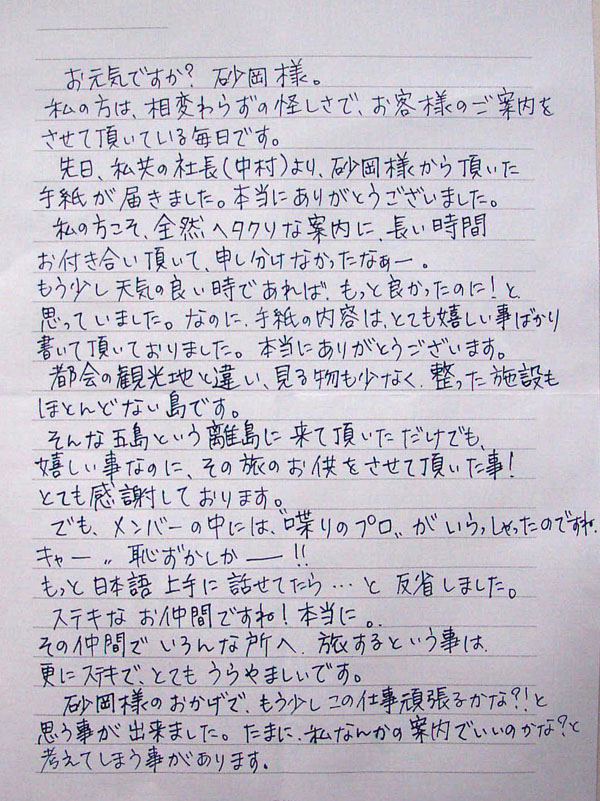 お元気ですか? 砂岡様。
私の方は、相変わらずの怪しさで、お客様のご案内を
させて頂いている毎日です。
先日、私共の社長(中村)より、砂岡様から頂いた
手紙が届きました。本当にありがとうございました。
私の方こそ、全然ヘタクソな案内に、長い時間
お付き合い頂いて、申し分けなかったなぁー。
もう少し天気の良い時であれば、もっと良かったのに!と、
思っていました。なのに、手紙の内容は、とても嬉しい事ばかり
書いて頂いておりました。本当にありがとうございます。
都会の観光地と違い、見る物も少なく、整った施設も
ほとんどない島です。
そんな五島という離島に来て頂いただけでも、
嬉しい事なのに、その旅のお供をさせて頂いた事!
とても感謝しております。
でも、メンバーの中には、"喋りのプロ"がいらっしゃったのですね。
キャー〃 恥ずかしかー!!
もっと日本語上手に話せてたら…と反省しました。
ステキなお仲間ですね!本当に。
その仲間でいろんな所へ、旅するという事は、
更にステキで、とてもうらやましいです。
砂岡様のおかげで、もう少しこの仕事頑張るかな?!と
思う事が出来ました。たまに、私なんかの案内でいいのかな?と
考えてしまう事があります。